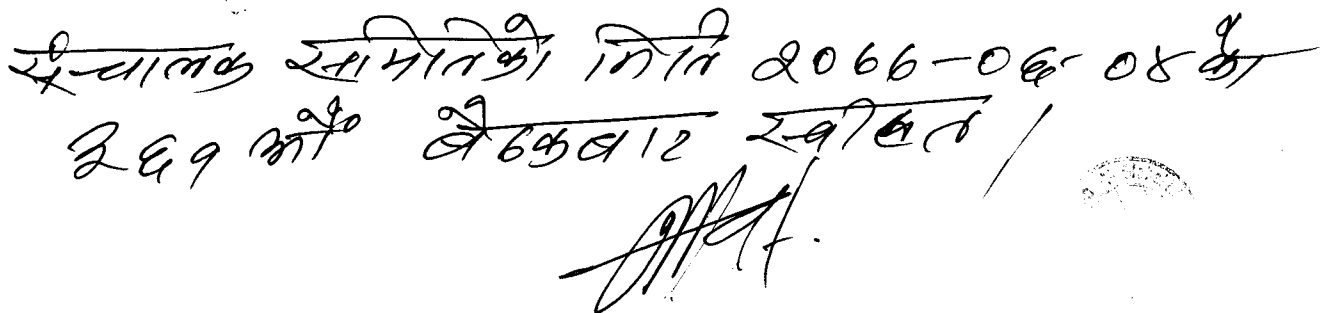 संचालक समितिको मिति २०६६-०६-०४ को
३६१ औं बैठकबाट स्वीकृत।